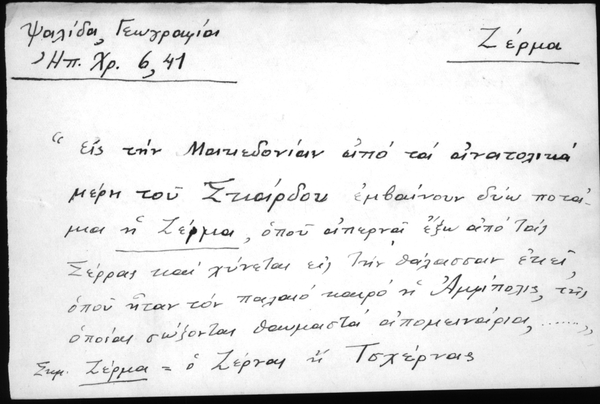 Ψαλίδα, Γεωγραφία
Ζέρμα
Ἠπ. Χρ. 6, 41
"Εἰς τὴν Μακεδονίαν ἀπό τά ἀνατολικά
μέρη τοῦ Σκάρδου ἐμβαίνουν δύω ποτά-
μια ἡ Ζέρμα, ὁποῦ ἀπερνᾶ ἔξω ἀπό τάς
Σέρρας καί χύνεται εἰς τήν θάλασσαν ἐκεῖ,
ὁποῦ ἦταν τόν παλαιό καιρό ἡ Ἀμφίπολις, τῆς
ὁποίας σώζονται θαυμαστά ἀπομεινάρια, ......,
Σημ. Ζέρμα = ὁ Ζέρνας ἤ Τσχέρνας